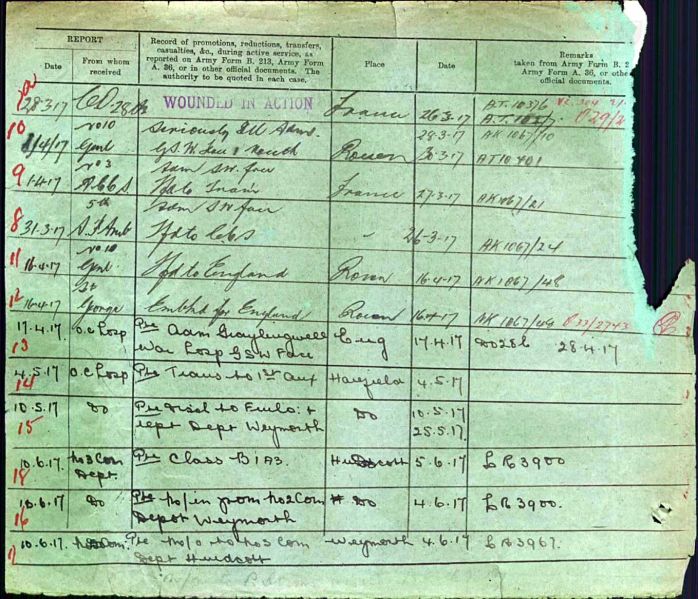 REPORT
Date
From whom received
Record of promotions, reductions, transfers, casualties, &c., during active service, as reported on Army Form B. 213, Army Form A. 36, or in other official documents. The authority to be quoted in each case.
Place
Date
Remarks
taken from Army Form B. 2
Army Form A. 36, or othe
official documents.
28-3-17 CO 28th WOUNDED IN ACTION France 26-3-17 A.T. 103/6
10 No 10 Seriously Ill Adms. 28-3-17 AK 1067/10
1/4/17 Genl GSW Face & mouth Rouen 30-3-17 AT10401
9 No 3 Adm SW face
1-4-17 A.C.C.S To A Train France 27-3-17 AK1067/21
5th Adm SW face
8 31-3-17 A.F. Amb Tfd to CCS " 26-3-17 AK1067/24
11 No 10
16-4-17 Genl Tfd to England Rouen 16-4-17 AK1067/48
12 St
16-4-17 George Embkd for England Rouen 16-4-17 AK1067/49 O33/2743
17.4.17 O.C. Hosp Pte Adm Graylingwell Eng 17.4.17 DO28 28.4.17
13 War Hosp GSW Face
4.5.17 O.C. Hosp Pte Trans to 1st Aux Harefield 4.5.17
14
10.5.17 Do Pte Disch to Furlo: & Do 10.5.17
15 rept Dept Weymouth 25.5.17.
10.6.17 No 3 Com Pte Class B1A3. Hurdcott 5.6.17 LR3900
18 Dept.
10.6.17 Do Pte M/in from No2Com Do 4.6.17 LR3900.
16 Depot Weymouth
10.6.17. Com. Pte M/O to No3Com Weymouth 4.6.17 LR3967.
Dept Hurdcott